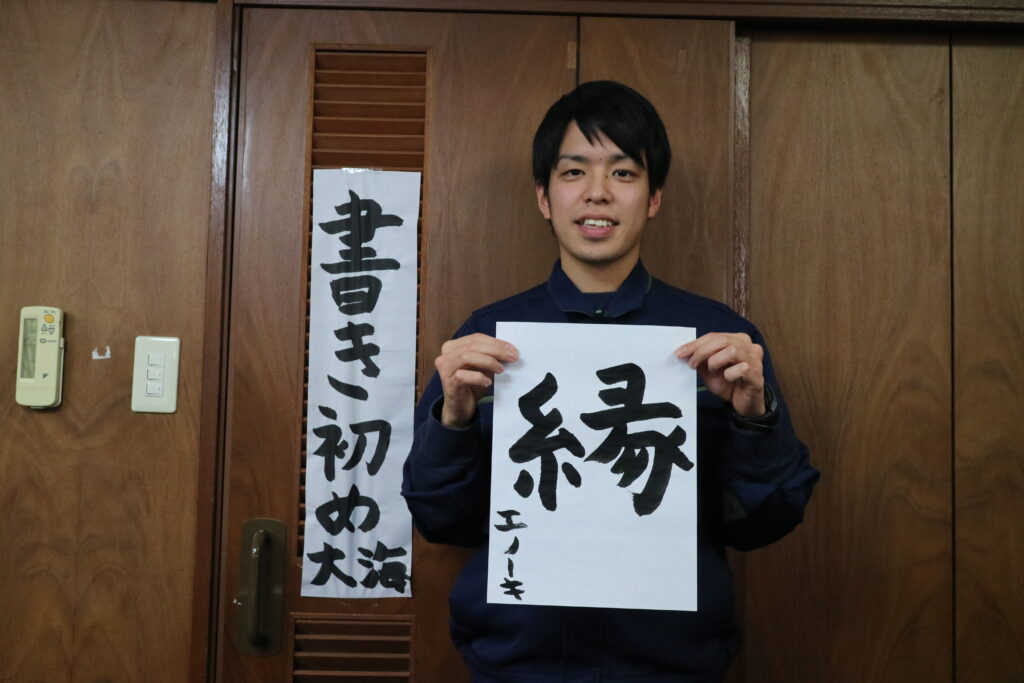 書き初め
大海
縁
エノーキ